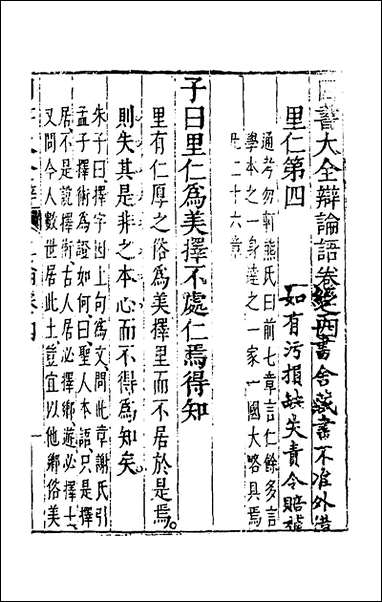 四書大全辯論語卷
經西書舍藏書不准外借
如有污損缺失責令賠補
里仁第四
通考勿軒熊氏曰前七章言仁餘多言
學本之一身達之一家一國大略具焉
凡二十六章
子曰里仁為美擇不處仁焉得知
里有仁厚之俗為美擇里而不居於是焉
則失其是非之本心而不得為知矣
朱子曰擇字因上句為文問此章謝氏引
孟子擇術為證如何曰聖人本語只是擇
居不是說擇術古人居必擇鄉遊必擇士
又問今人數世居此土豈宜以他鄉俗美